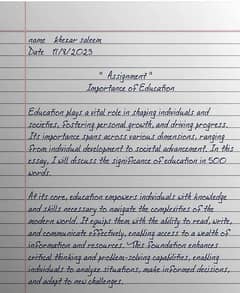 name khezar saleem
Date 17/8/2023
" Assignment "
Importance of Education
Education plays a vital role in shaping individuals and
societies, fostering personal growth, and driving progress.
Its importance spans across various dimensions, ranging
from individual development to societal advancement. In this
essay, I will discuss the significance of education in 500
words.
At its core, education empowers individuals with knowledge
and skills necessary to navigate the complexities of the
modern world. It equips them with the ability to read, write,
and communicate effectively, enabling access to a wealth of
information and resources. This foundation enhances
critical thinking and problem-solving capabilities, enabling
individuals to analyze situations, make informed decisions,
and adapt to new challenges.